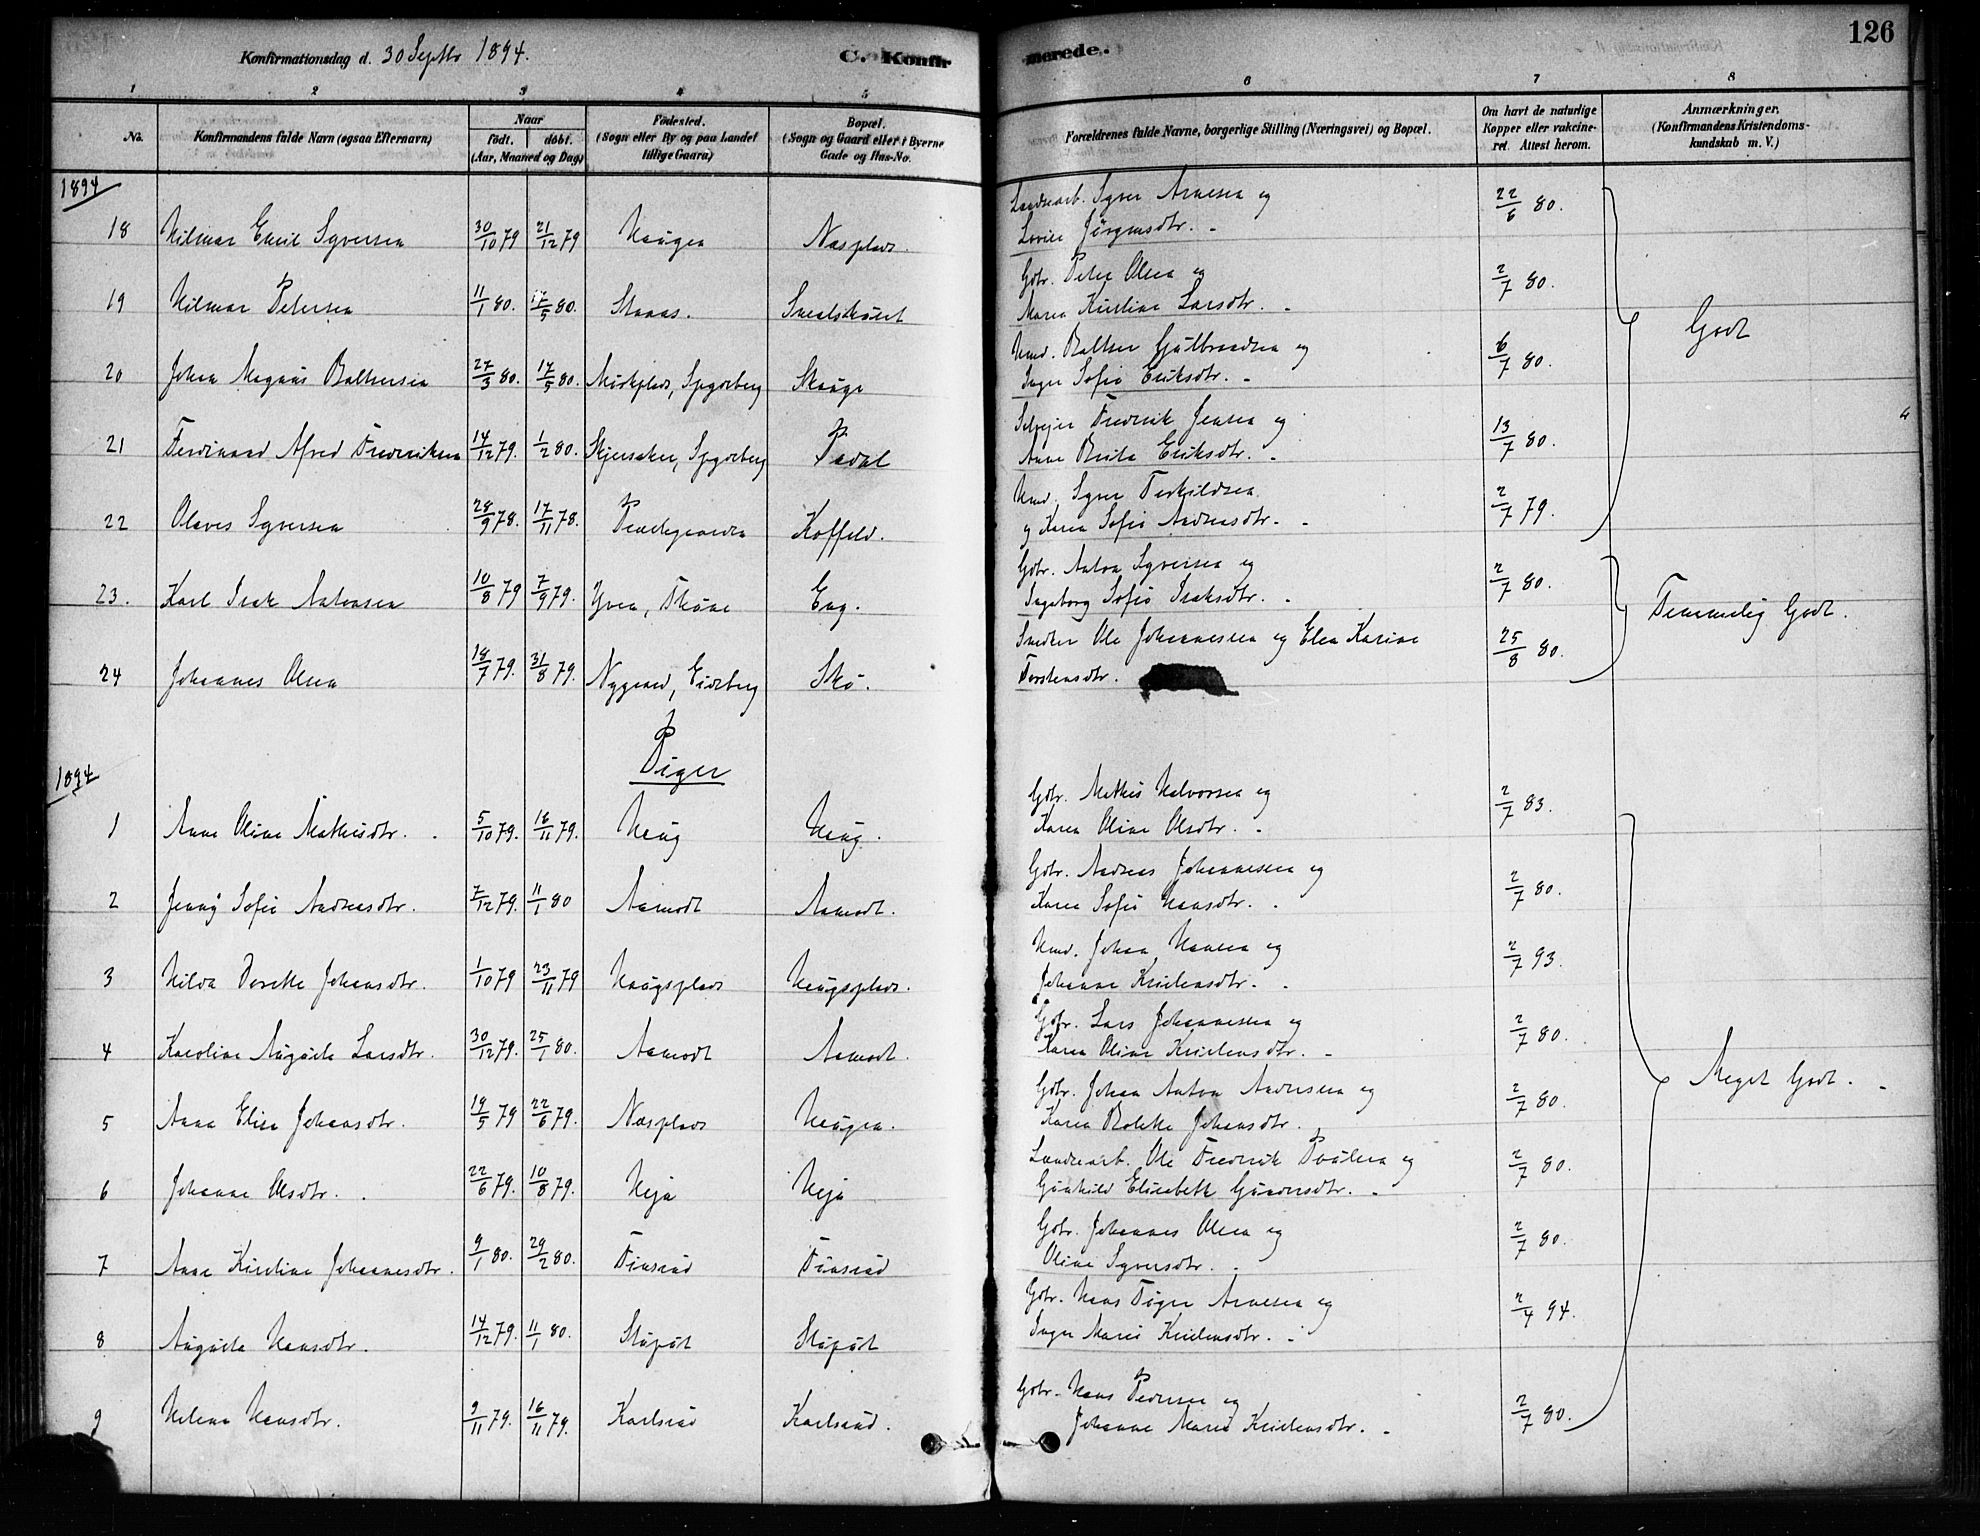 126
Konfirmationsdag d. 30 Septbr 1894.
C. Konfirmerede.
1 2 3 4 5 6 7 8
No. Konfirmandens fulde Navn (ogsaa Efternavn) Naar født. døbt. (Aar, Maaned og Dag) Fødested. (Sogn eller By og paa Landet tillige Gaard) Bopæl. (Sogn og Gaard eller i Byerne Gade og Hus-No. Forældrenes fulde Navne, borgerlige Stilling (Næringsvei) og Bopæl. Om havt de naturlige Kopper eller vakcineret. Attest herom. Anmærkninger. (Konfirmandens Kristendomskundskab m. V.)
1894
18 Hilmar Emil Syversen 30/10 79 21/12 79 Haugen Næsplads. Landsarb. Syver Arnesen og
Lovise Jörgensdtr. 22/6 80.
19 Hilmar Petersen 11/1 80. 17/5 80. Gbr. Peter Olsen og
Maren Kristine Larsdtr. 2/7 80. Godt
20 Johan Magnus Balthersen 27/3 80. 17/5 80. Spydeberg Hmd. Gulbrandsen og
Inger Sofie Eriksdtr. 6/7 80.
21 Ferdinand Alfred Fredriksen 14/12 79. 1/2 80. Spydeberg Selvejer Fredrik Jensen og
Anne Eriksdtr. 13/7 80.
22 Olaves Syversen 28/9 78. 17/11 78. Hmd. Syver Terkildsen
og Karen Sofie Andreasdtr. 2/7 79.
23. Karl Isak Antonsen 10/8 79 7/9 79. Eng. Gbr. Anton Syversen og
Ingeborg Sofie Isaksdtr. 2/7 80. Temmelig Godt.
24 Johannes Olsen 18/7 79. 31/8 79. Nygaard, Eidsberg Snedker Ole Johannessen og Elen Karine
Torstensdtr. 25/8 80.
Piger
1894
1 Anne Oline Mathisdtr. 5/10 79. 16/11 79. Haug Haug. Gbr. Mathis Halvorsen og
Karen Oline Olsdtr. 2/7 83.
2 Jenny Sofie Andreasdtr. 7/12 79. 11/1 80 Aamodt Aamodt. Gbr. Andreas Johannesen og
Karen Sofie Hansdtr. 2/7 80.
3 Hilda Dorthe Johansdtr. 1/10 79 23/11 79 Haugsplads Haugsplads. Hmd. Johan Hansen og
Johanne Kristensdtr. 2/7 93.
4 Karoline Augusta Larsdtr. 30/12 79. 25/1 80. Aamodt Aamodt. Gbr. Lars Johannessen og
Karen Oline Kristensdtr. 2/7 80. Meget Godt.
5 Anna Elise Johansdtr. 19/5 79 22/6 79. Næsplads Haugen. Gbr. Johan Anton Andersen og
Karen Johansdtr. 2/7 80.
6 Johanne Olsdtr. 22/6 79. 10/8 79. Landsarb. Ole Fredrik Paulsen og
Gunhild Elisabeth 2/7 80.
7 Anne Kirstine Johannesdtr. 9/1 80. 29/2 80. Finsrud Finsrud Gbr. Johannes Olsen og
Oline Syversdtr. 2/7 80.
8 Augusta Hansdtr. 14/12 79. 11/1 80. Gbr. Hans Arnesen og
Inger Marie Kristensdtr. 2/4 94.
9 Helena Hansdtr. 9/11 79. 16/11 79. Karlsrud Karlsrud. Gbr. Hans Pedersen og
Johanne Marie Kristensdtr. 2/7 80.